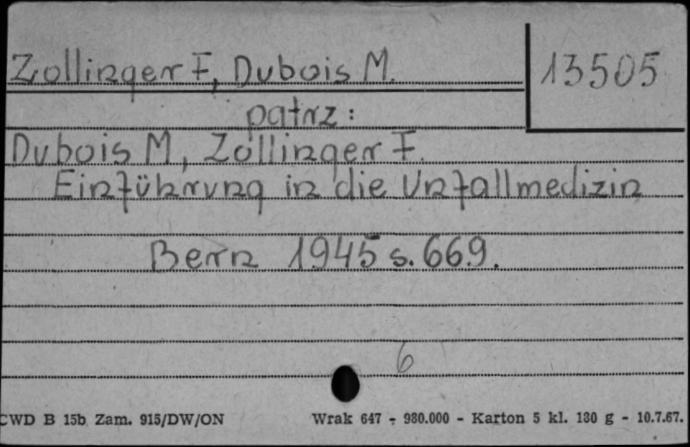 Zollinger F, Dubois M. 13505
patrz:
Dubois M, Zollinger F.
Einführung in die Unfallmedizin
Bern 1945 s. 669.
6
CWD B 15b Zam. 915/DW/ON Wrak 647 - 980.000 - Karton 5 kl. 180 g - 10.7.67.